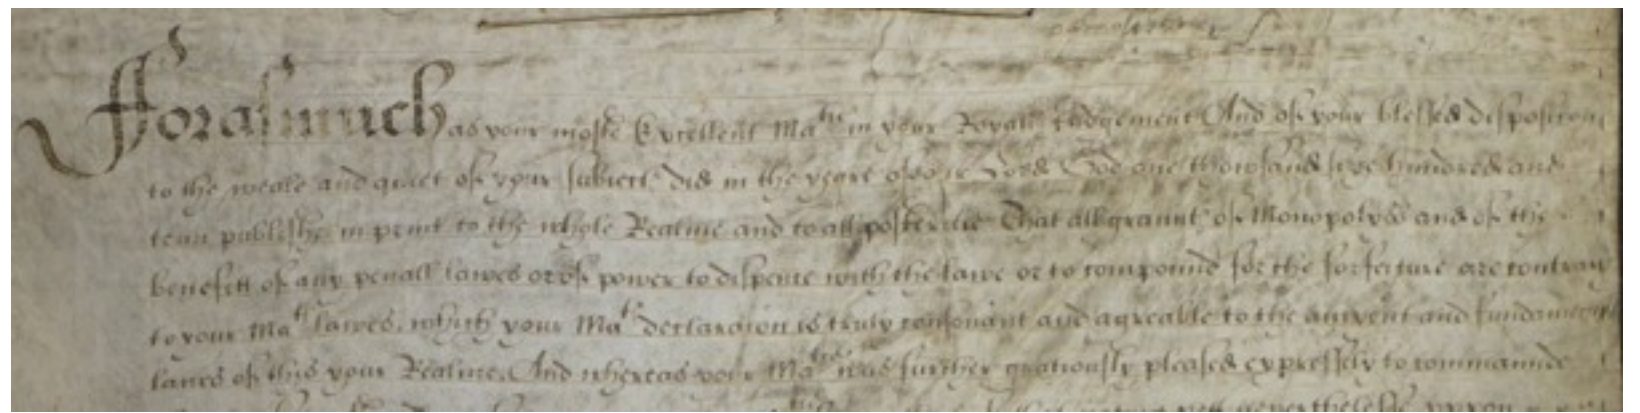 Forasmuch as your moste Excellent Matie in your Royall Judgement And of your blessed disposicion
to the weale and quiet of your subiects did in the yeare of our Lord God one thousand sixe hundred and
tenn publishe in print to the whole Realme and to all posteritie That all graunts of Monopolyes and of the
benefitt of any penall lawes or of power to dispence with the lawe or to compound for the forfeiture are contrary
to your Maties lawes, which your Maties declaracion is truly consonant and agreable to the auncient and fundamentall
lawes of this your Realme, And whereas your Matie was further graciously pleased expressely to commaunde